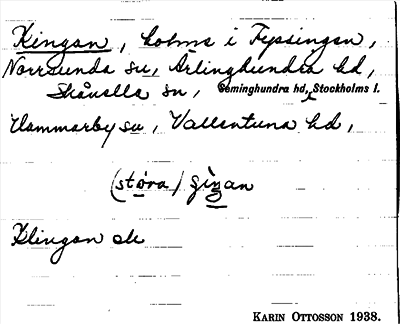 Kingan, holme i Fysingen,
Norrsunda sn, Ärlinghundra hd,
Skånella sn, Seminghundra hd, Stockholms l.
Hammarby sn, Vallentuna hd,
(stora) gingan
Klingan ek
KARIN OTTOSSON 1938.